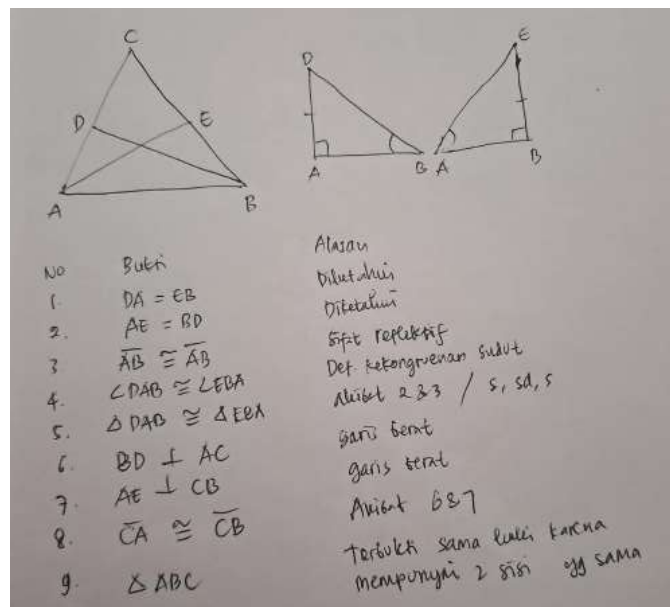 C
D
E
A
B
D
A
B
E
A
B
No Bukti Alasan
1. DA = EB Diketahui
2. AE = BD Diketahui
3 AB ≅ AB Sifat repleksif
4. ∠DAB ≅ ∠EBA Def. kekongruenan sudut
5. Δ DAB ≅ Δ EBA Akibat 2 & 3 / s, sd, s
6. BD ⊥ AC garis berat
7. AE ⊥ CB garis berat
8. CA ≅ CB Akibat 6 & 7
9. Δ ABC Terbukti sama kaki karena
mempunyai 2 sisi yg sama